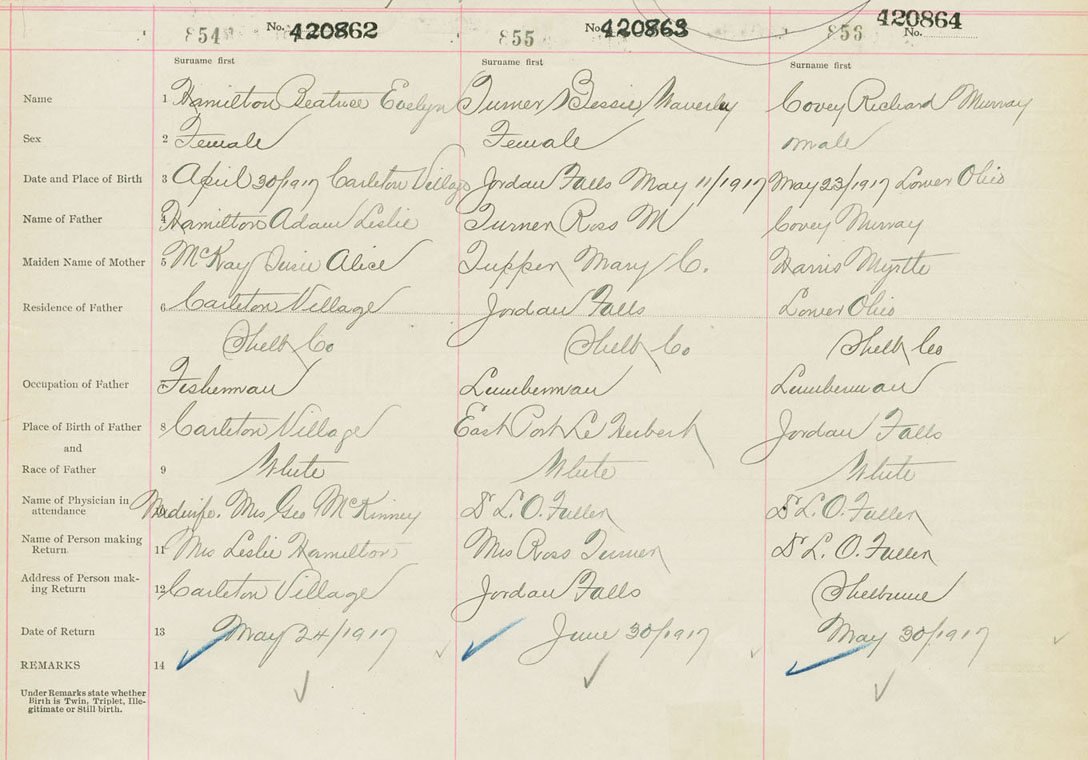 854 No. 420862 855 No. 420863 856 No. 420864
Surname first Surname first Surname first
Name 1 Hamilton Beatrice Evelyn Turner Bessie Waverly Covey Richard Murray
Sex 2 Female Female male
Date and Place of Birth 3 April 30/1917 Carleton Village Jordan Falls May 11/1917 May 23/1917 Lower Ohio
Name of Father 4 Hamilton Adam Leslie Turner Ross M Covey Murray
Maiden Name of Mother 5 McKay Susie Alice Tupper Mary C. Harris Myrtle
Residence of Father 6 Carleton Village Jordan Falls Lower Ohio
Shelb Co Shelb Co Shelb Co
Occupation of Father 7 Fisherman Lumberman Lumberman
Place of Birth of Father 8 Carleton Village East Port Le Herbert Jordan Falls
and
Race of Father 9 White White White
Name of Physician in
attendance 10 Midwife. Mrs Geo McKinney Dr L. O. Fuller Dr L. O. Fuller
Name of Person making
Return 11 Mrs Leslie Hamilton Mrs Ross Turner Dr L. O. Fuller
Address of Person mak-
ing Return 12 Carleton Village Jordan Falls Shelburne
Date of Return 13 May 24/1917 June 30/1917 May 30/1917
REMARKS 14
Under Remarks state whether
Birth is Twin, Triplet, Ille-
gitimate or Still birth.